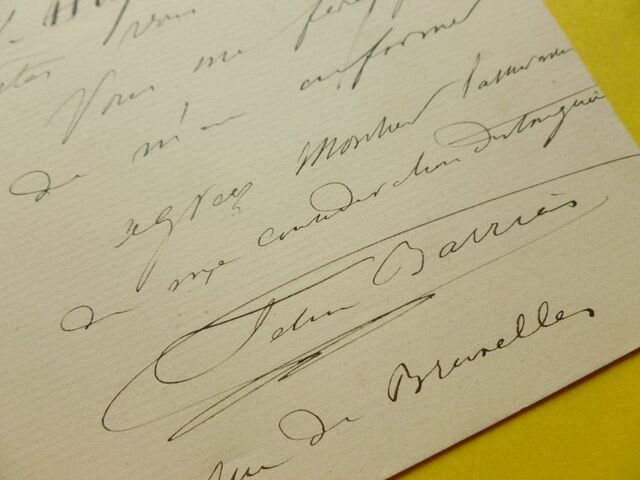 vous
Vous me
de m'en informer
agréez Monsieur l'assurance
de ma considération distinguée
Felix Barrias
rue de Bruxelles